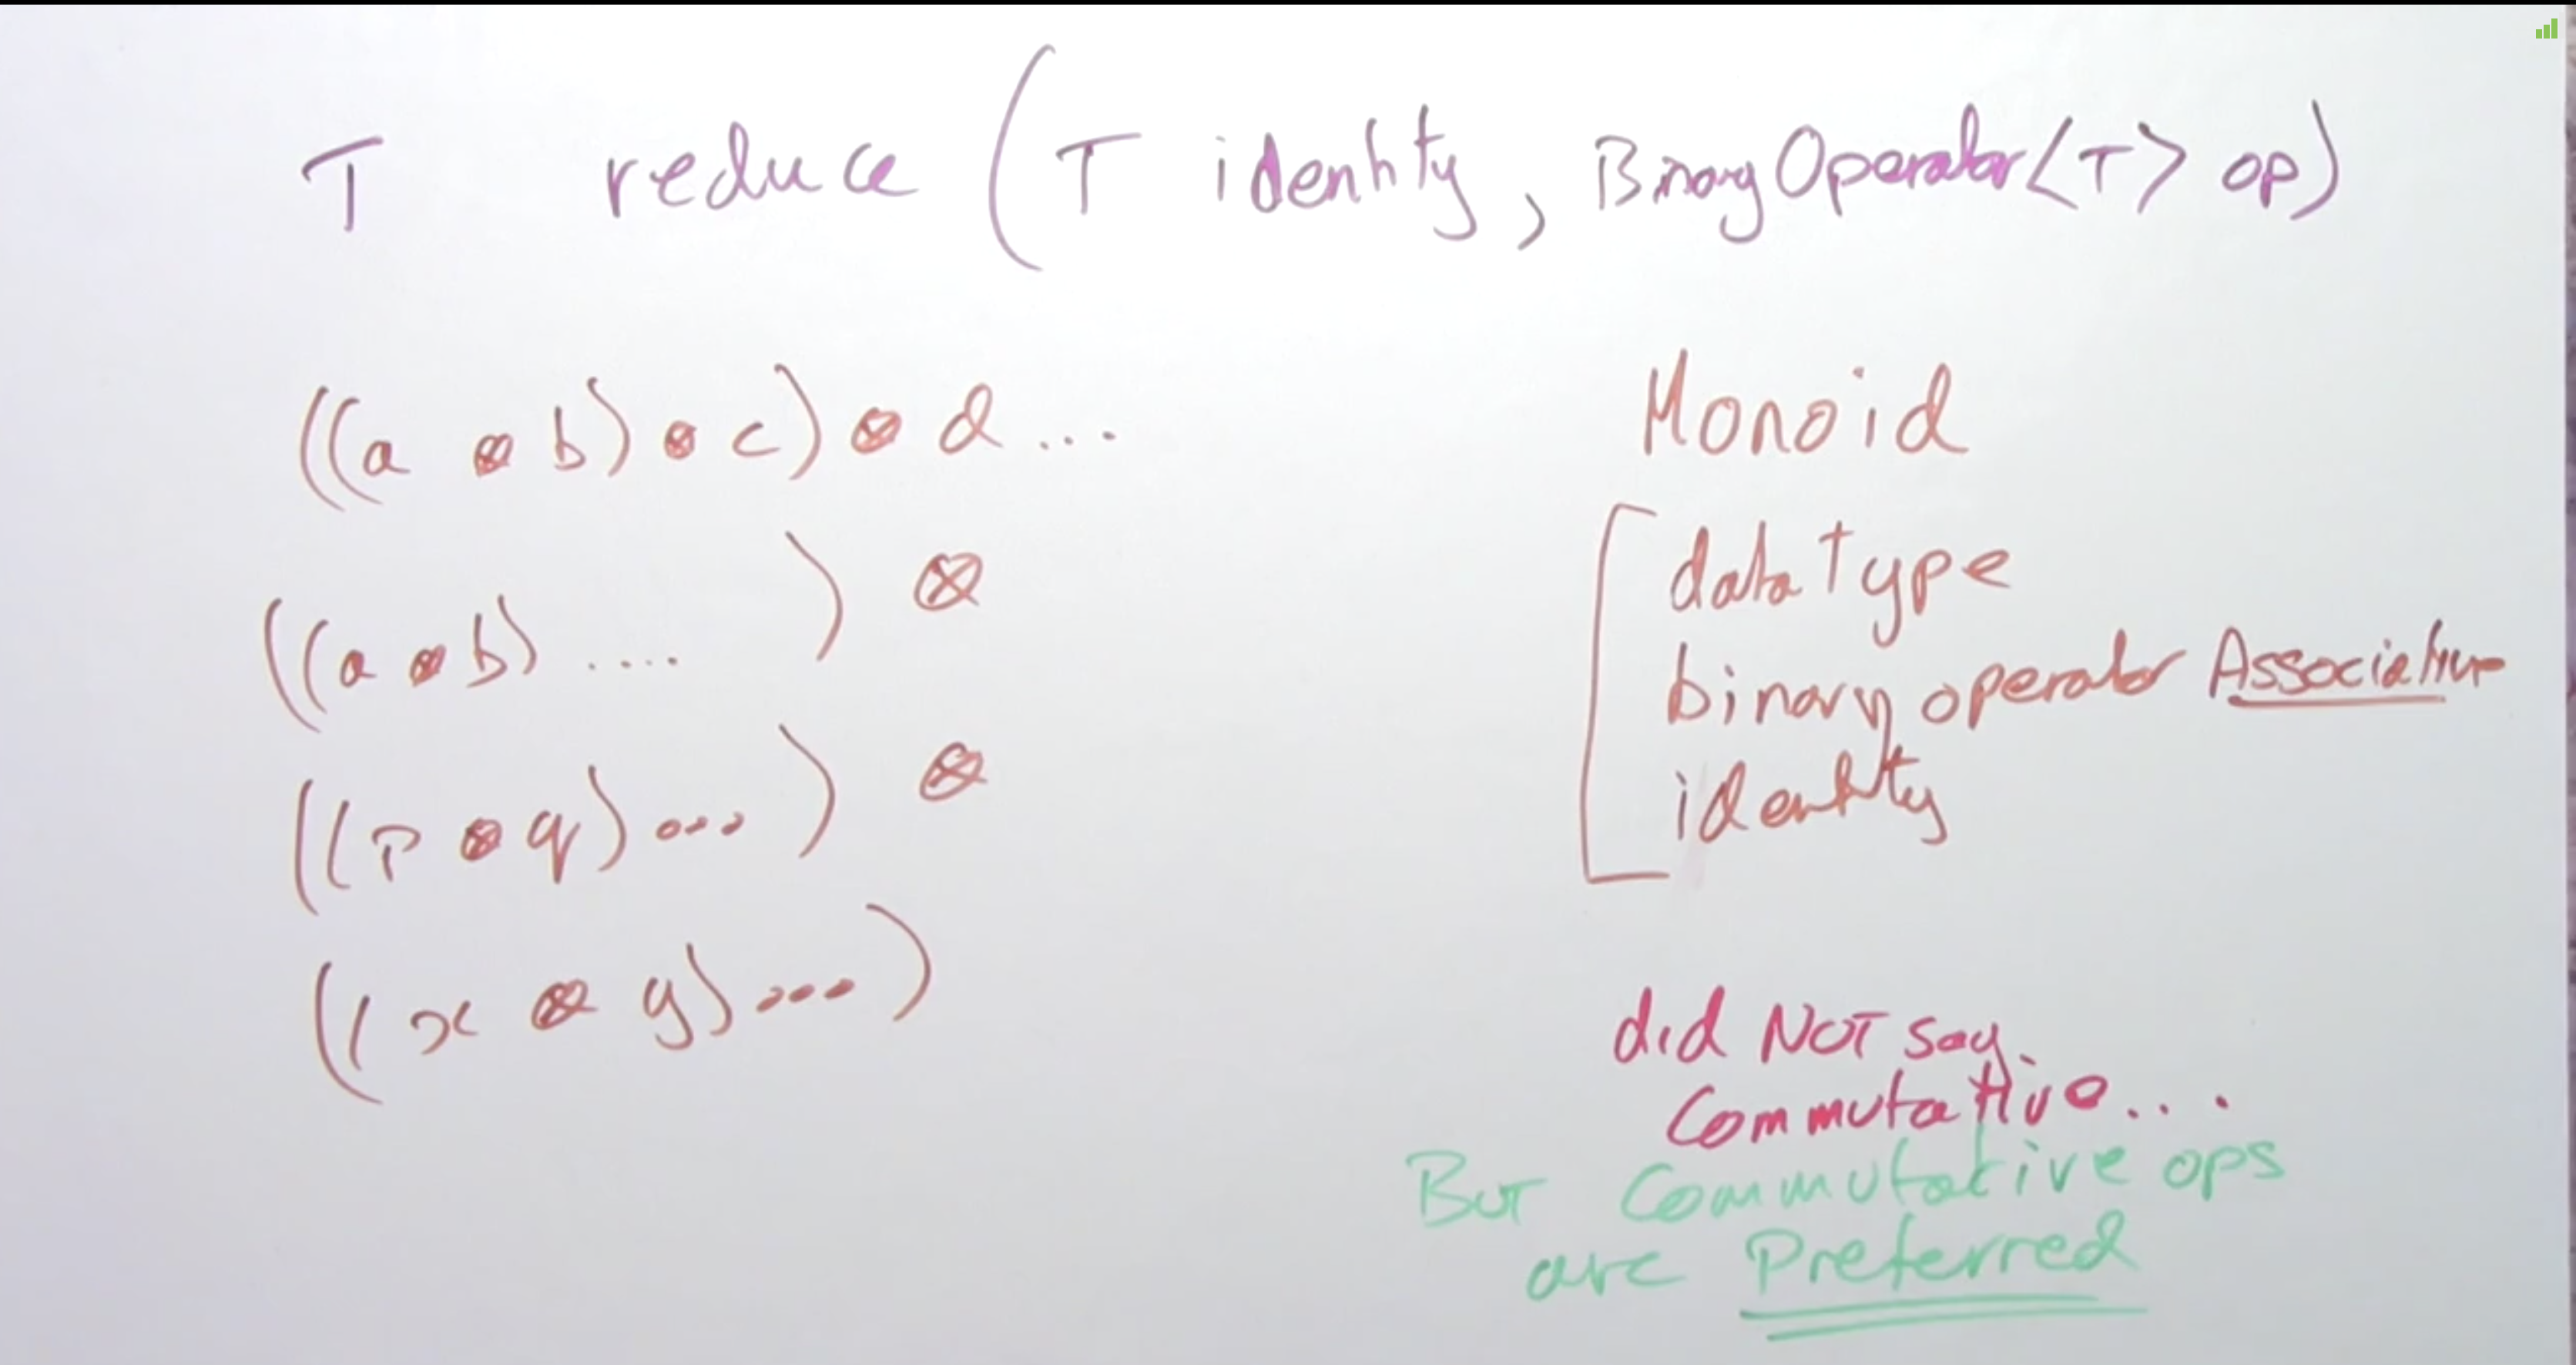 T reduce (T identity, BinaryOperator<T> op)
((a ⊗ b) ⊗ c) ⊗ d ...
((a ⊗ b) .... ) ⊗
((p ⊗ q) ... ) ⊗
((x ⊗ y) ... )
Monoid
datatype
binary operator Associative
identity
did NOT say
Commutative....
But Commutative ops
are Preferred